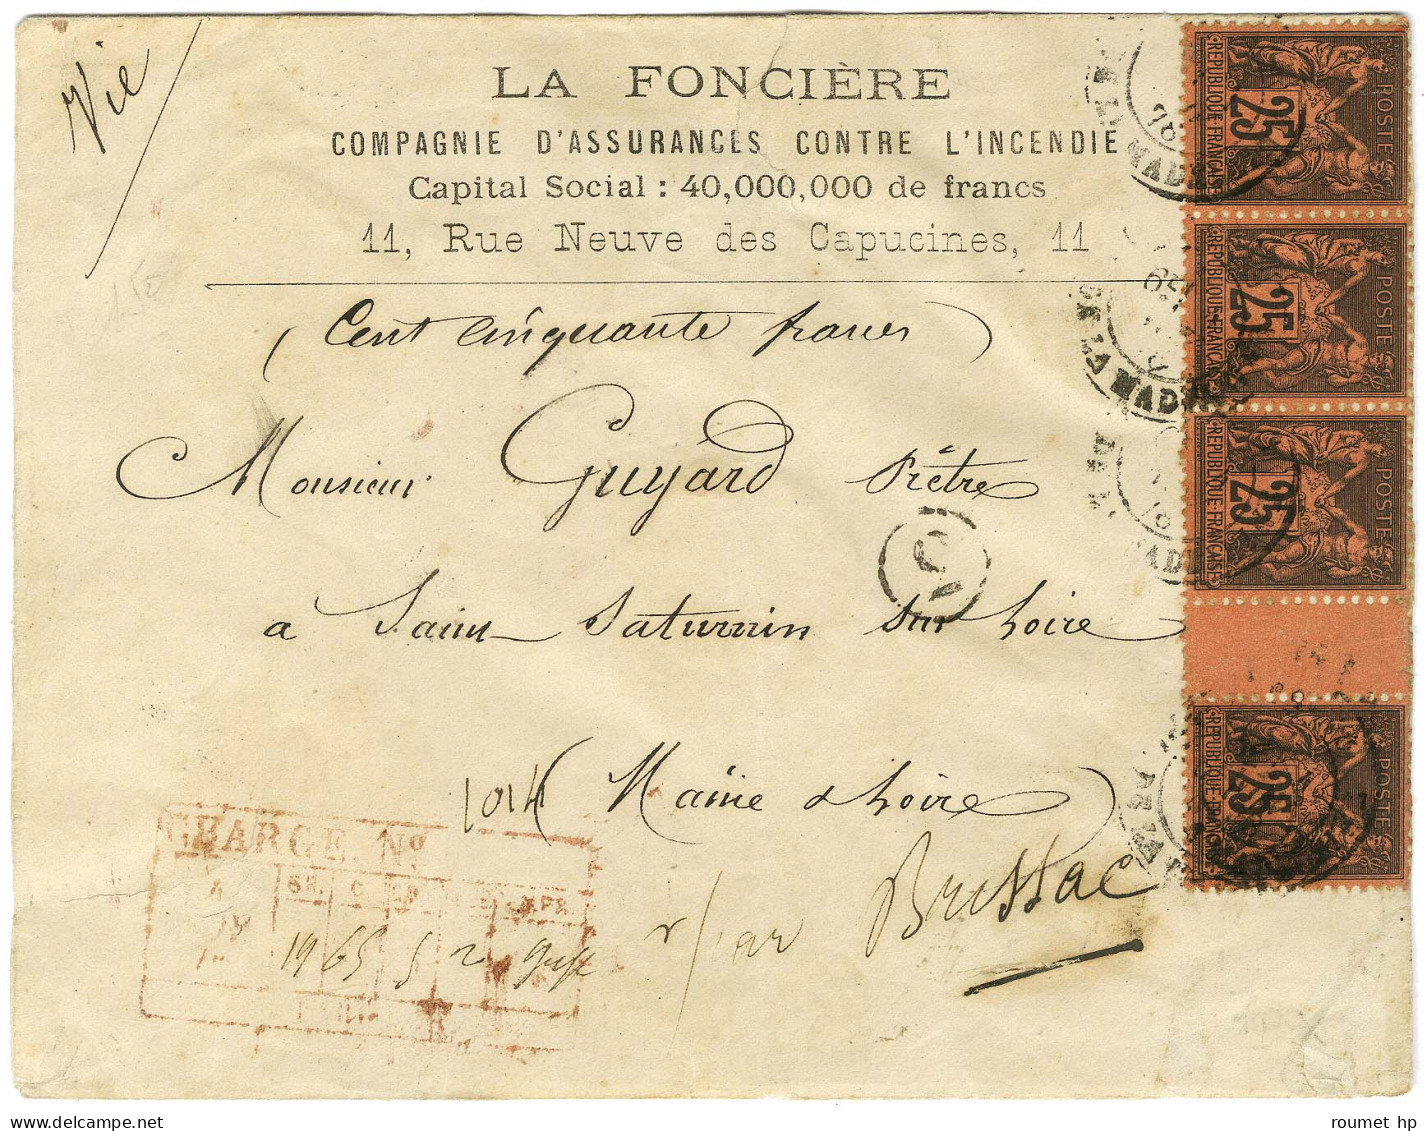 Vie
LA FONCIÈRE
COMPAGNIE D'ASSURANCES CONTRE L'INCENDIE
Capital Social : 40,000,000 de francs
11, Rue Neuve des Capucines, 11
( Cent cinquante francs )
Monsieur Guyard Prêtre
a Saint Saturnin sur Loire
( Maine & Loire )
Brissac
CHARGÉ. Nº
POSTES
25
REPUBLIQUE-FRANÇAISE
POSTES
25
REPUBLIQUE-FRANÇAISE
POSTES
25
REPUBLIQUE-FRANÇAISE
POSTES
25
REPUBLIQUE-FRANÇAISE
roumet hp